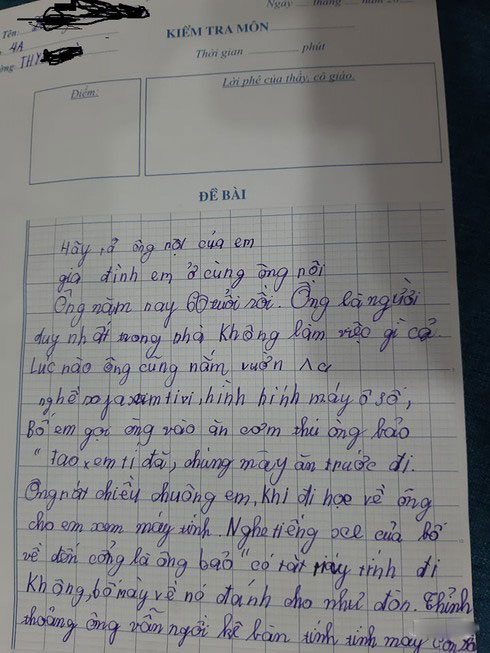 Ngày ... tháng ... năm 20
Tên:
4A
KIỂM TRA MÔN
ờng THY
Thời gian phút
Điểm:
Lời phê của thầy, cô giáo.
ĐỀ BÀI
Hãy tả ông nội của em
gia đình em ở cùng ông nội
Ông năm nay 60 tuổi rồi. Ông là người
duy nhất trong nhà không làm việc gì cả.
Lúc nào ông cũng nằm vườn
xem tivi, hình hình máy ô số,
Bố em gọi ông vào ăn cơm thì ông bảo
"Tao xem tí đã, chúng mày ăn trước đi.
Ông rất chiều chuông em, khi đi học về ông
cho em xem máy tính. Nghe tiếng xe của bố
về đến cổng là ông bảo "có tắt máy tính đi
không, bố mày về nó đánh cho như đòn. Thỉnh
thoảng ông vẫn ngồi kê bàn tính tính máy con